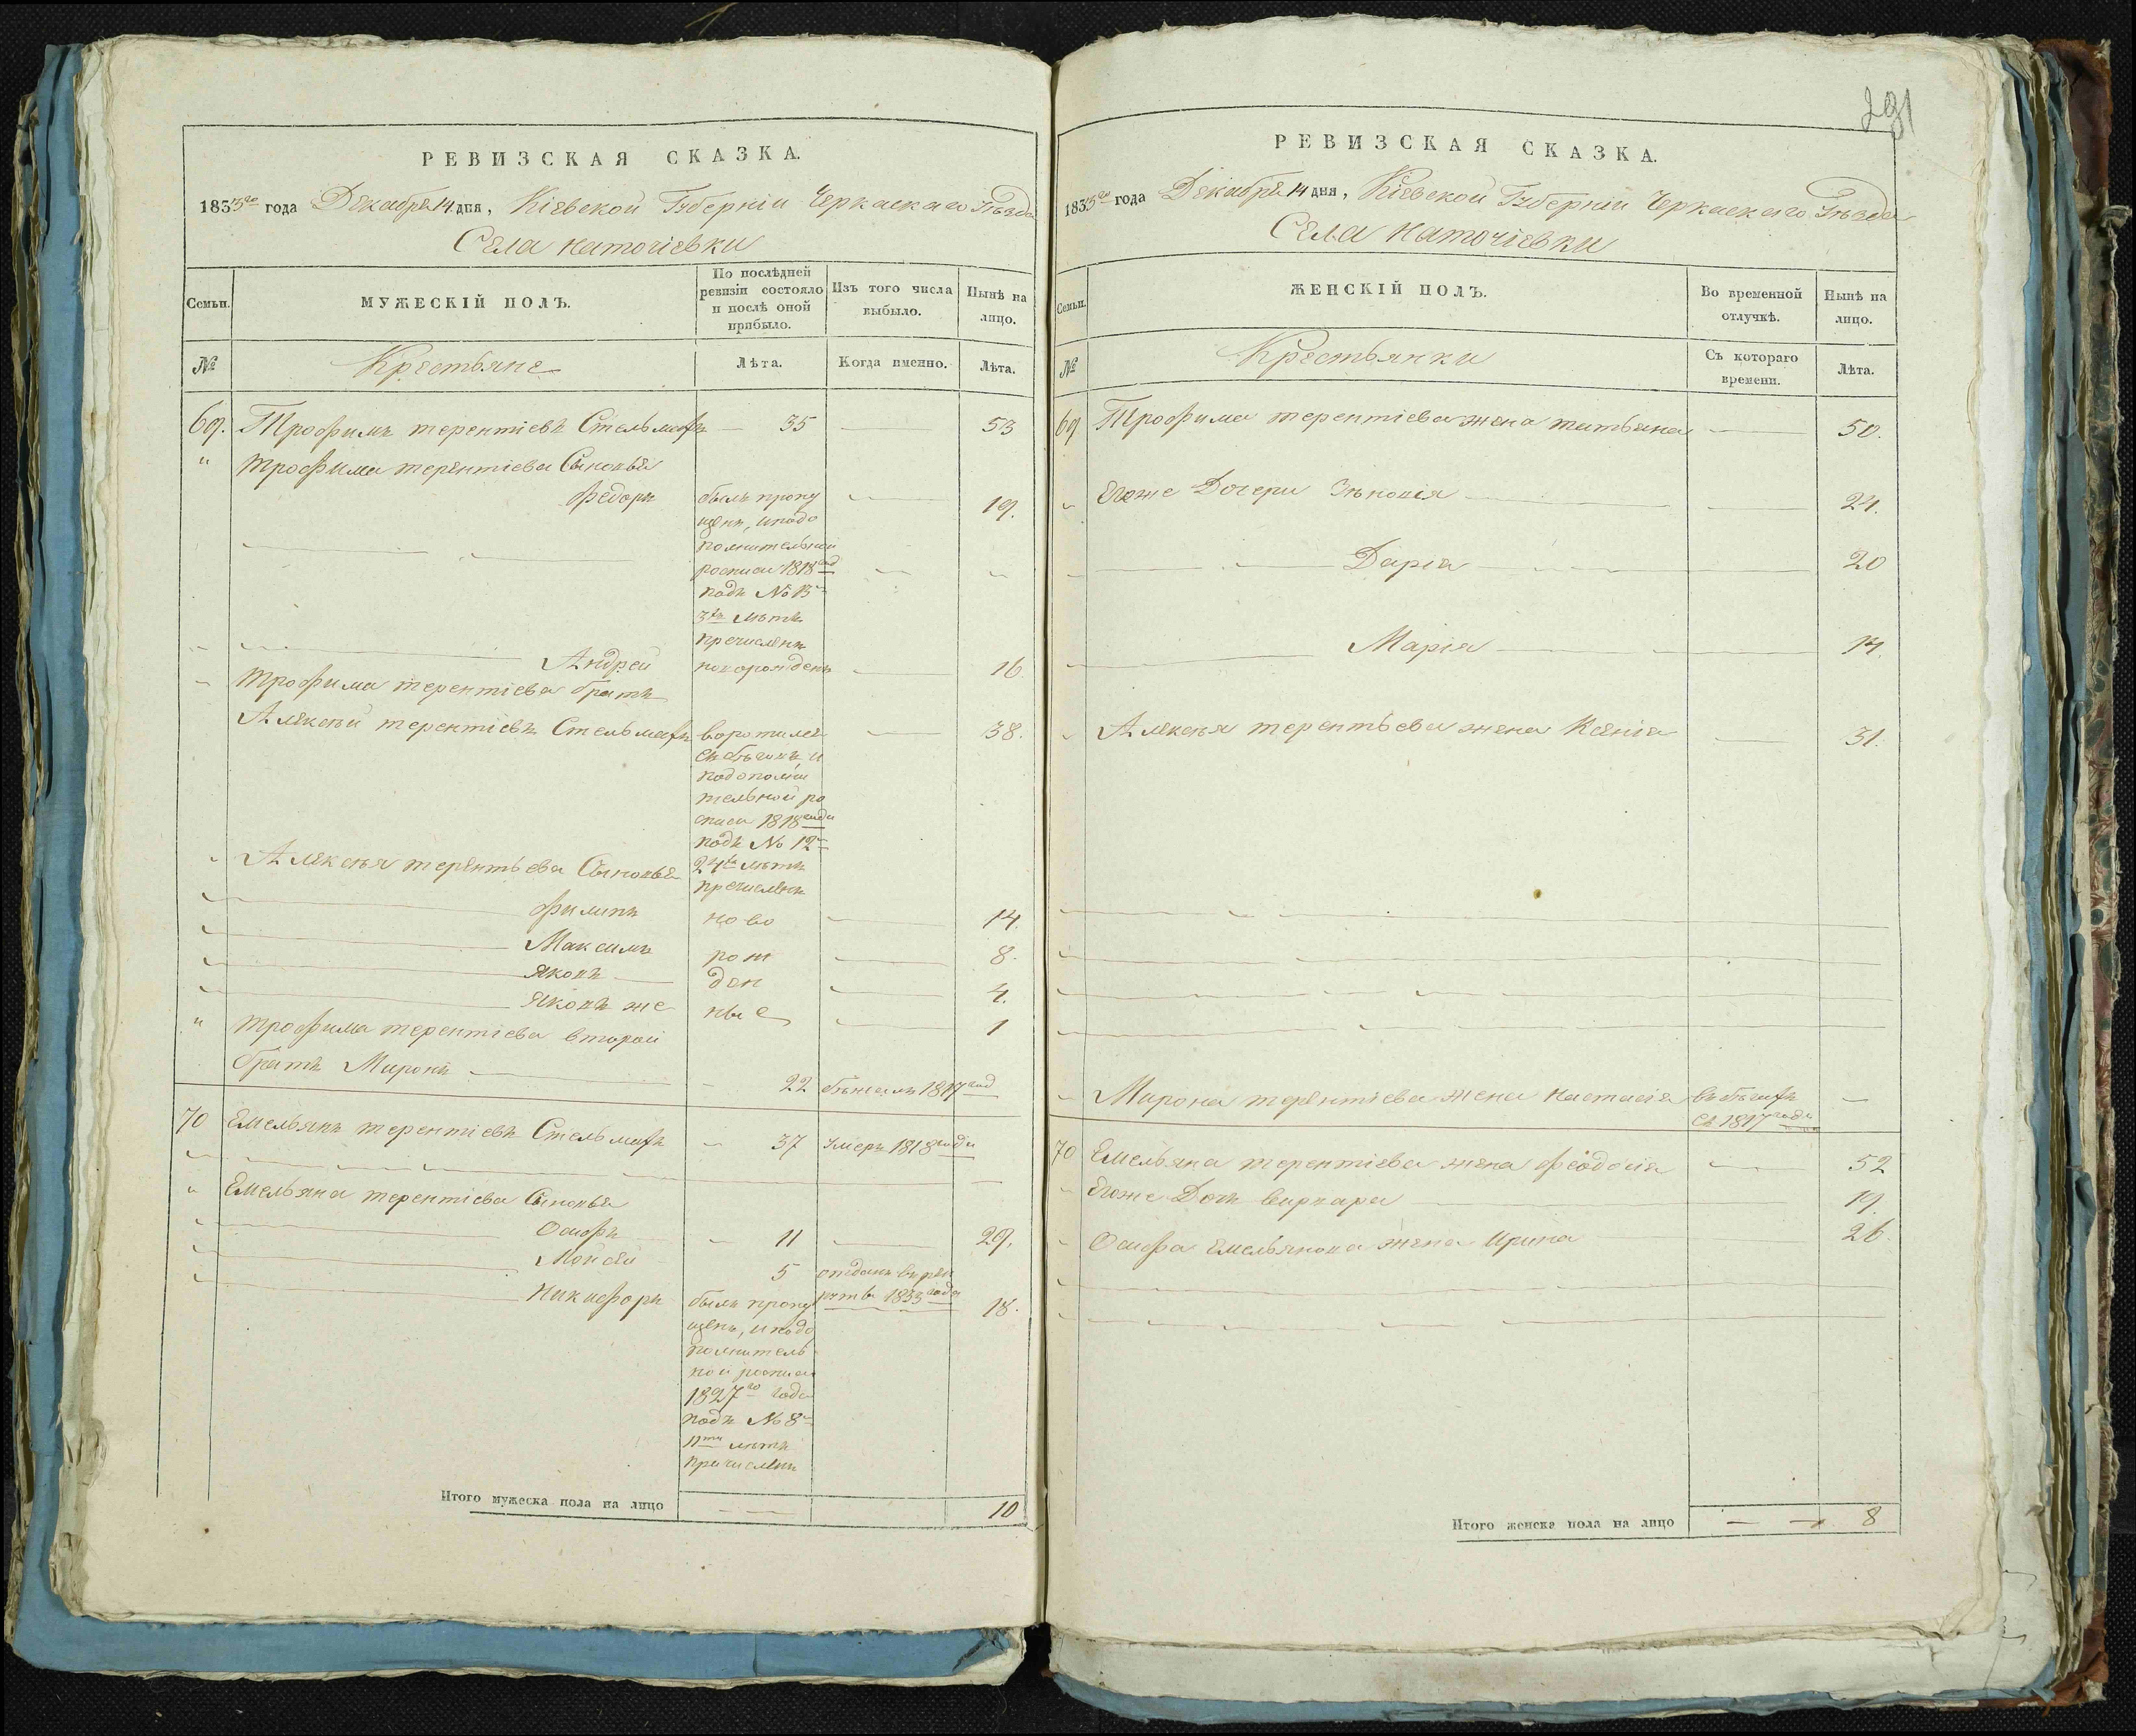 РЕВИЗСКАЯ СКАЗКА.
1833го года Декабря 14 дня, Кіевской Губерніи Черкаскаго Уѣзда
Села
Семьи.
МУЖЕСКІЙ ПОЛЪ.
По послѣдней ревизіи состояло и послѣ оной прибыло.
Изъ того числа выбыло.
Нынѣ на лицо.
№
Крестьяне
Лѣта.
Когда именно.
Лѣта.
69. Трофимъ терентіевъ Стельмахъ 35 53
" трофима терентіева Сыновья
федоръ былъ пропу 19.
щенъ, и подо
полнительной
росписи 1818 год
подъ № 13
3хъ лѣтъ
пречисленъ
Андрей новорожденъ 16
трофима терентіева братъ
Алексѣй терентіевъ Стельмахъ воротился 38.
съ бѣговъ и
по дополни
тельной ро
списи 1818 года
подъ № 12
Алексѣя терентьева Сыновья 24хъ лѣтъ
пречисленъ
филипъ ново 14.
Максимъ рож 8.
яковъ ден 4.
яковъ же ные 1
" трофима терентіева второй
братъ Миронъ 22 бѣжалъ 1817 год
70 Емельянъ терентіевъ Стельмахъ 37 умеръ 1818 года
Емельяна терентіева Сыновья
Осифъ 11 29.
Моисей 5 отданъ в рек
рутъ 1833 года
Никифоръ былъ пропу 18.
щенъ, и подо
полнитель
ной росписи
1827го года
подъ № 8
11ти лѣтъ
причисленъ
Итого мужеска пола на лицо 10
291
РЕВИЗСКАЯ СКАЗКА.
1833го года Декабря 14 дня, Кіевской Губерніи Черкаскаго Уѣзда
Села
Семьи.
ЖЕНСКІЙ ПОЛЪ.
Во временной отлучкѣ.
Нынѣ на лицо.
№
Крестьянки
Съ котораго времени.
Лѣта.
69 Трофима терентіева жена татьяна 50.
Егоже Дочери Зѣновія 24.
Дарія 20
Марія 14.
Алексѣя терентьева жена Ксенія 31.
Мирона терентіева жена настасія въ бѣгахъ
съ 1817 года
70 Емельяна терентіева жена феодосія 52
Егоже Дочь варвара 19.
Осифа Емельянова жена Ирина 26
Итого женска пола на лицо 8